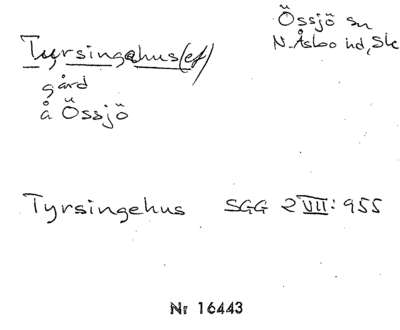 Tyrsingehus (ef)
Össjö sn
N. Åsbo hd, Sk
gård
å Össjö
Tyrsingehus SGG 2 VII: 955
Nr 16443